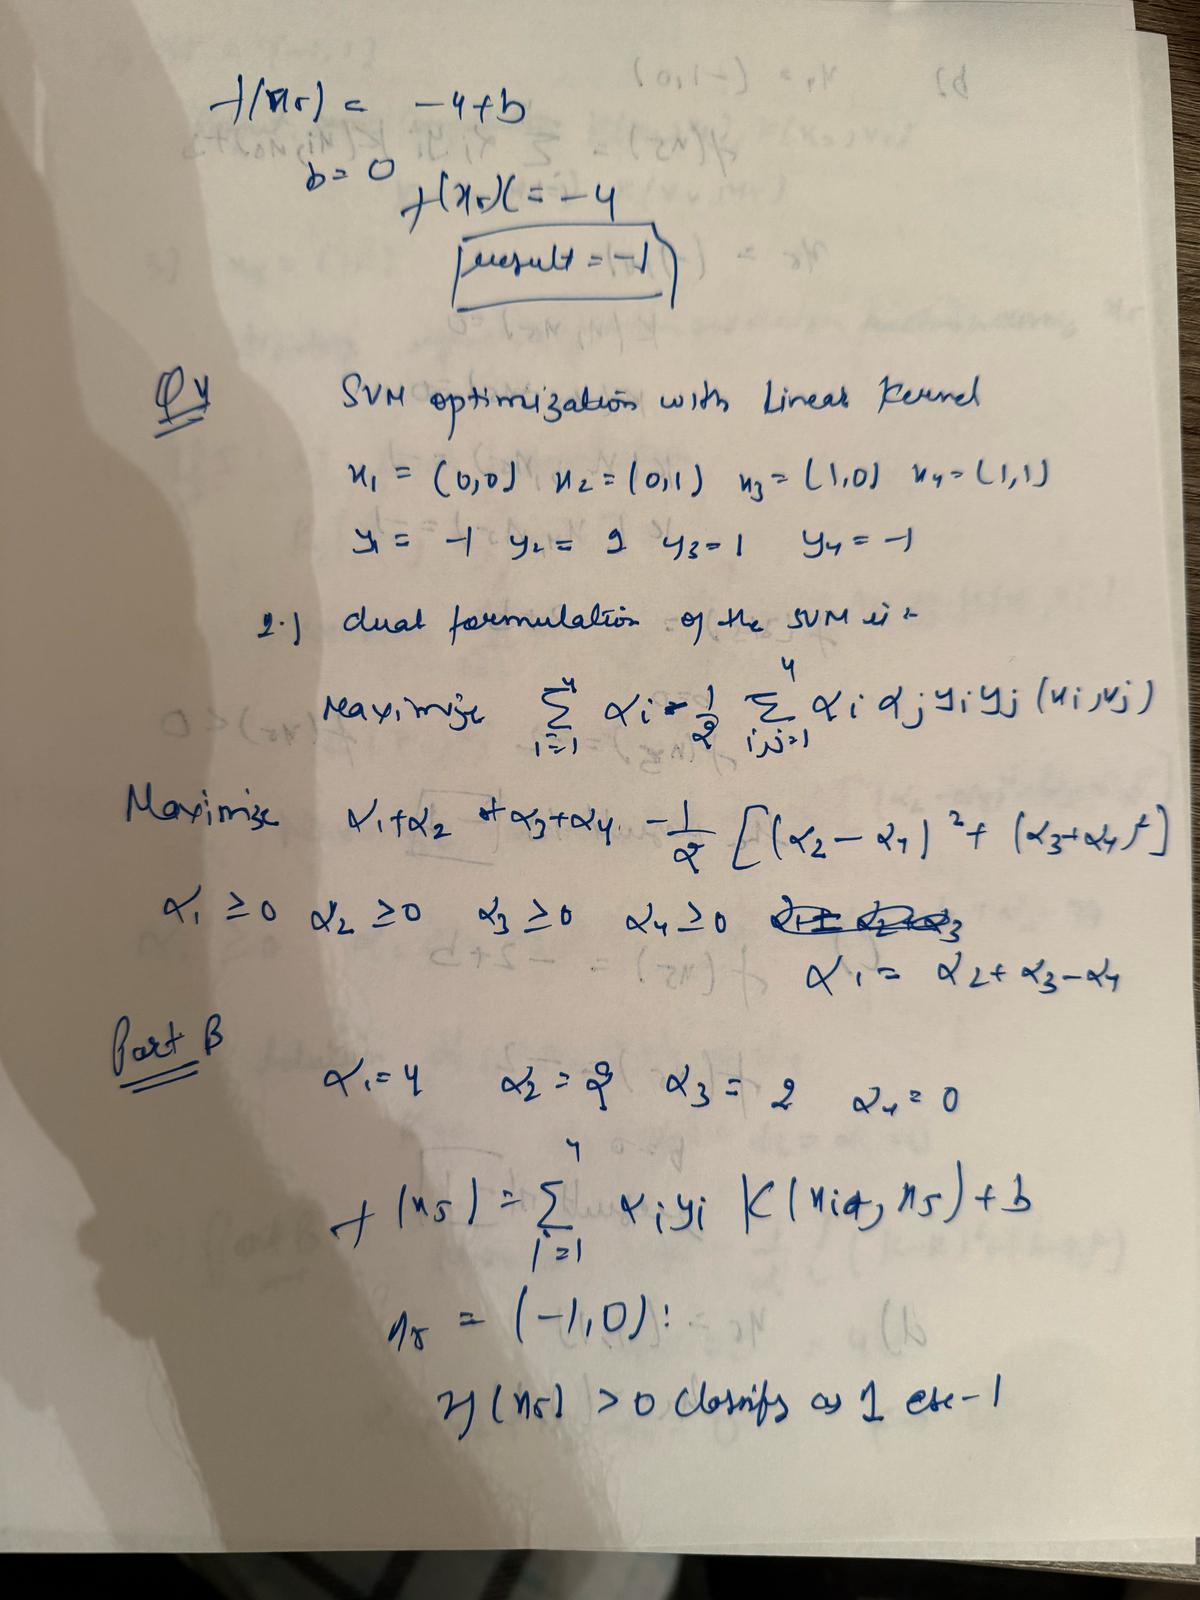 f(x5) = -4+b
b = 0
f(x5)(= -4
result = -1
Q4 SVM optimization with Linear Kernel
x1 = (0,0) x2 = (0,1) x3 = (1,0) x4 = (1,1)
y1 = -1 y2 = 1 y3 = 1 y4 = -1
2.) dual formulation of the SVM is =
Maximize Σ_{i=1}^{4} αi - 1/2 Σ_{i,j=1}^{4} αi αj yi yj (xi, xj)
Maximize α1+α2 + α3+α4 - 1/2 [(α2 - α4)² + (α3+α4)²]
α1 ≥ 0 α2 ≥ 0 α3 ≥ 0 α4 ≥ 0
α1 = α2 + α3 - α4
Part B
α1 = 4 α2 = 2 α3 = 2 α4 = 0
f(x5) = Σ_{i=1}^{4} αi yi K(xi, x5) + b
x5 = (-1,0):
If (x5) > 0 classify as 1 else -1